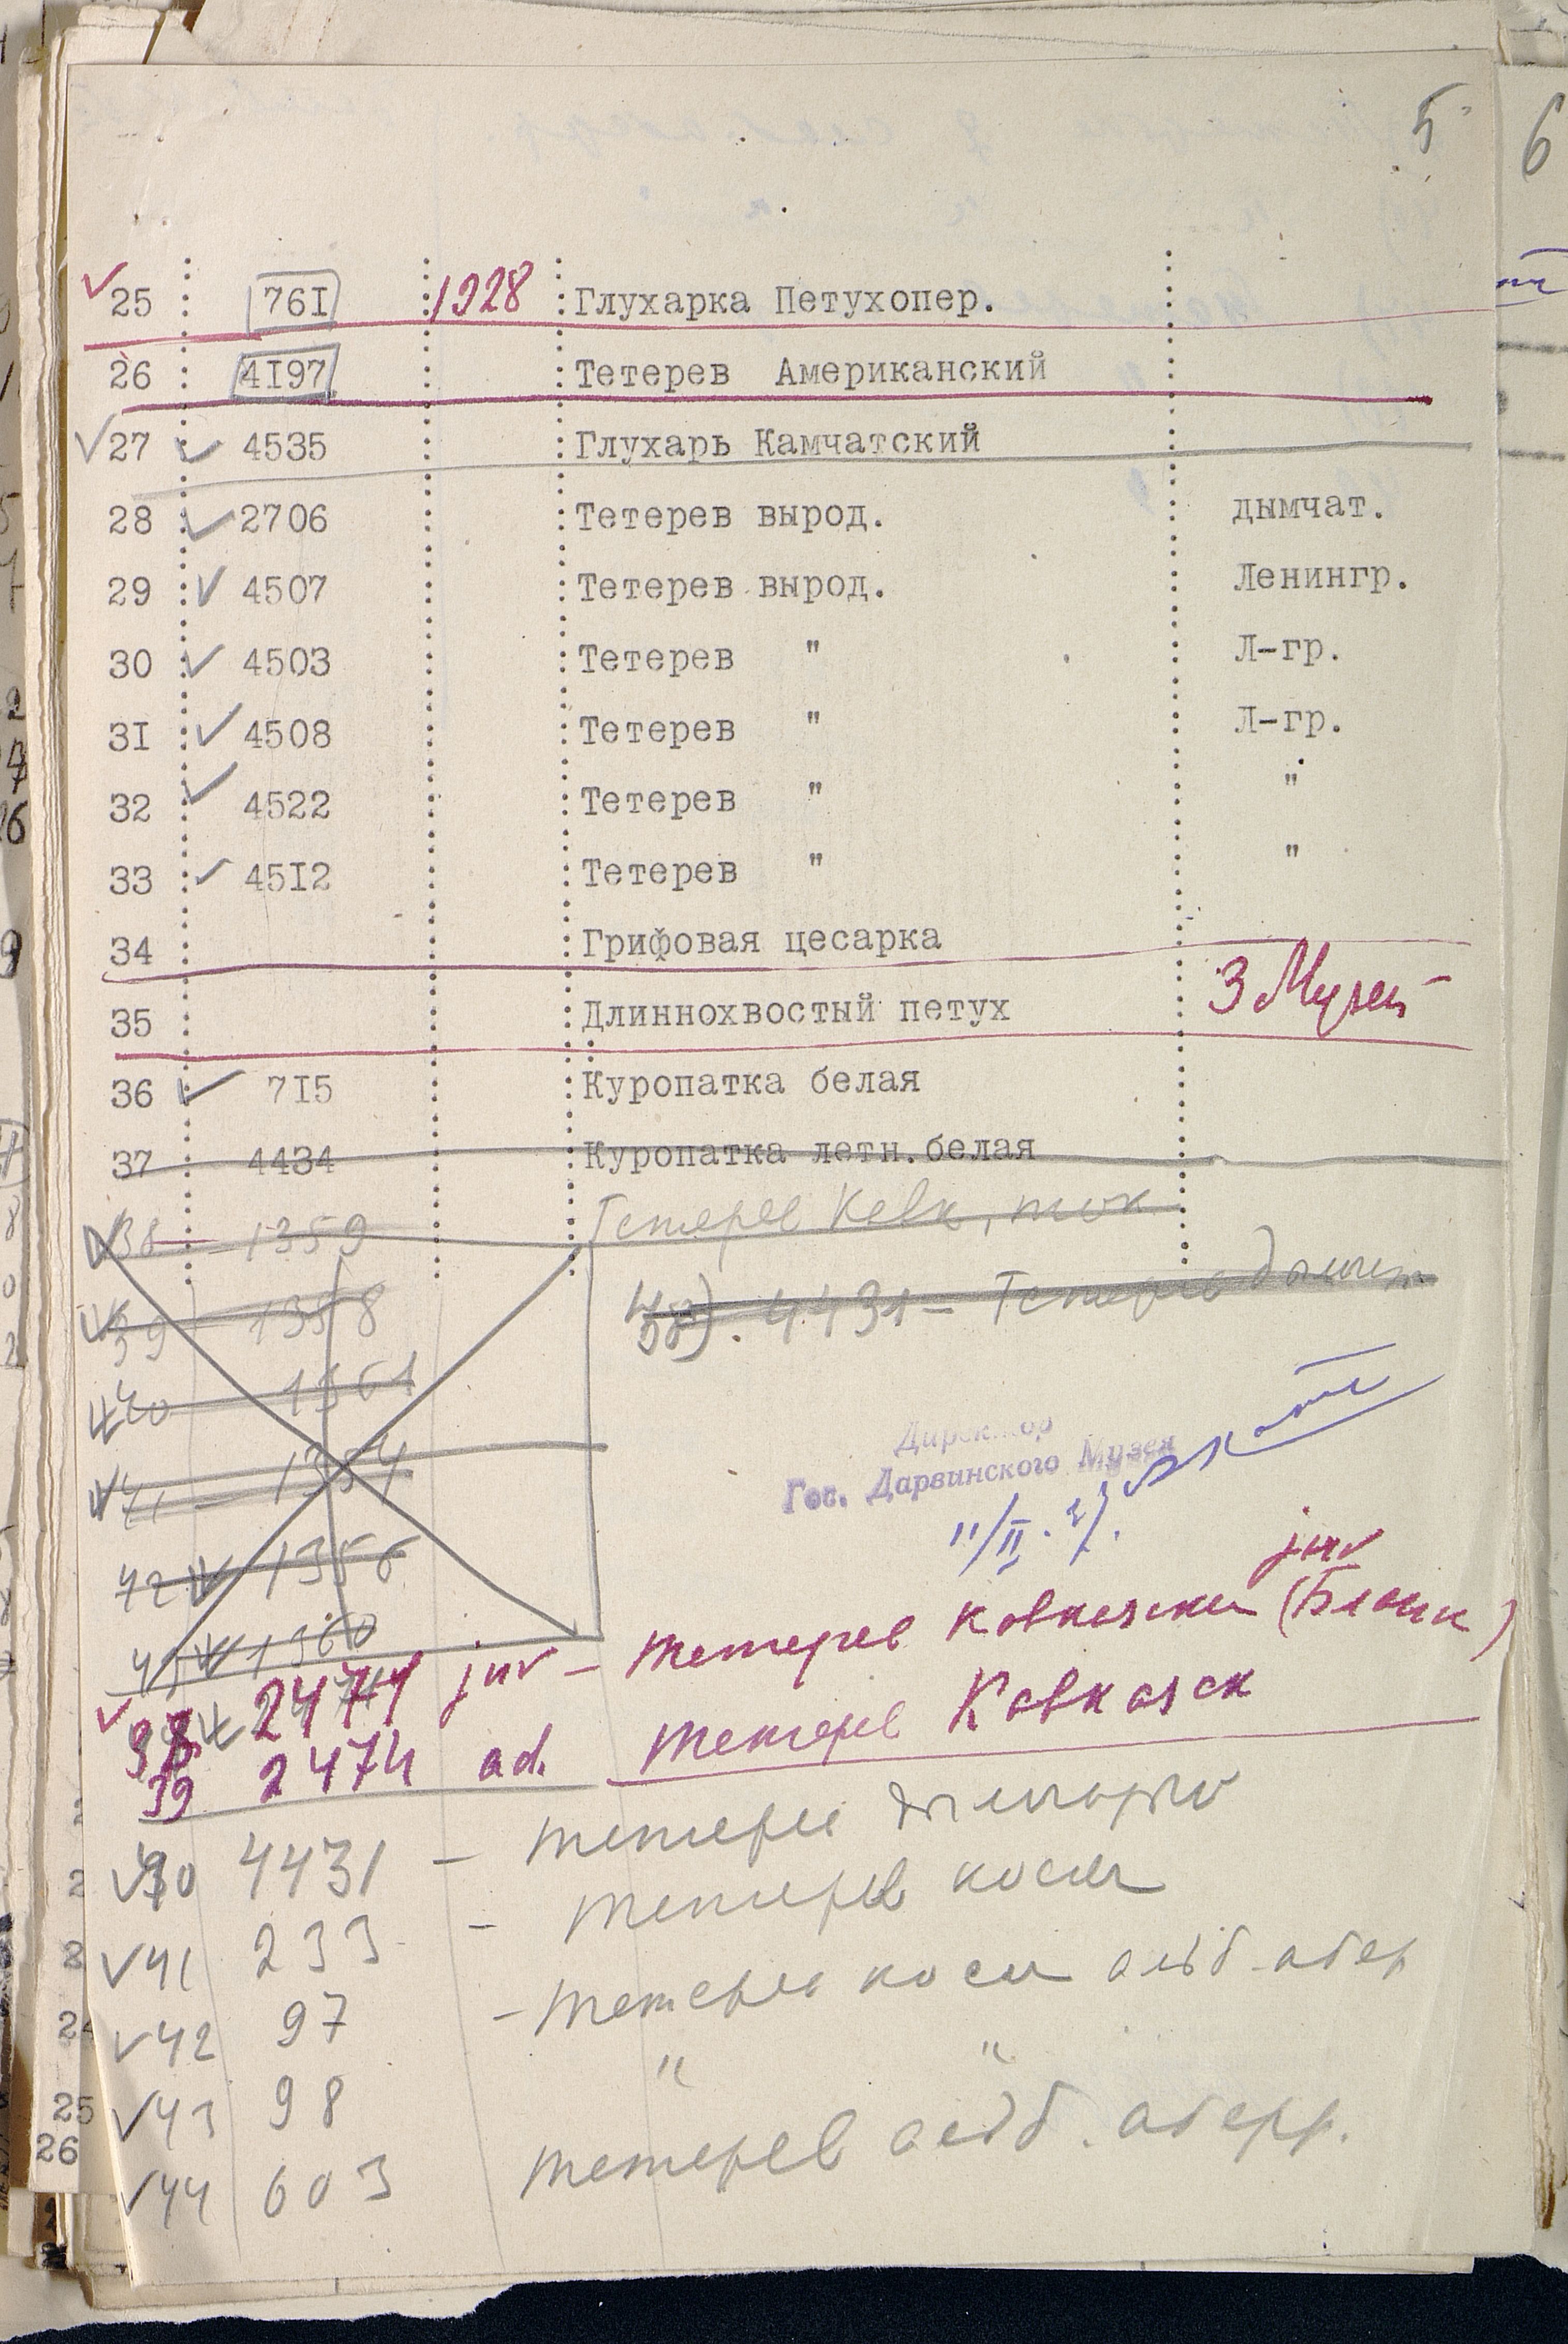 5
6
25 761 1928 Глухарка Петухопер.
26 4197 Тетерев Американский
27 4535 Глухарь Камчатский
28 2706 Тетерев вырод. дымчат.
29 4507 Тетерев вырод. Ленингр.
30 4503 Тетерев " Л-гр.
31 4508 Тетерев " Л-гр.
32 4522 Тетерев " "
33 4512 Тетерев " "
34 Грифовая цесарка
35 Длиннохвостый петух З Музей
36 715 Куропатка белая
37 4434 Куропатка летн.белая
38 - 1359 Тетерев Кавк, ток
39 1358 38). 4431 - Тетерев дымч
40 1361
41 - 1354
Директор
Гос. Дарвинского Музея
11/II.
42 1356
1360
juv
38 juv - тетерев Кавказский
39 2474 ad. тетерев Кавказск
40 4431 - тетерев
41 233 - тетерев косач
42 97 - тетерев косач альб. абер
43 98 " "
44 603 тетерев альб. аберр.
25
26